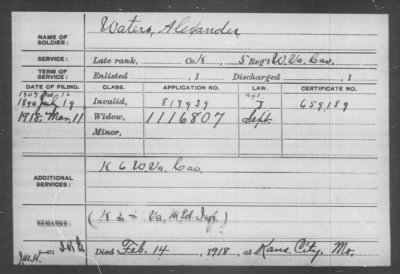 Waters, Alexander
NAME OF SOLDIER:
SERVICE: Late rank, Co. K, 5 Reg't W. Va. Cav.
TERM OF SERVICE: Enlisted , 1 Discharged , 1
DATE OF FILING. CLASS. APPLICATION NO. LAW. CERTIFICATE NO.
1890 July 19 Invalid, 817939 J 659189
1918. Mar 11 Widow, 1116807 Sept.
Minor,
ADDITIONAL SERVICES: K 6 W. Va. Cav.
REMARKS: (K 2 Va. Mtd. Inf.)
J.M.H. Died Feb. 14, 1918, at Kans. City, Mo.